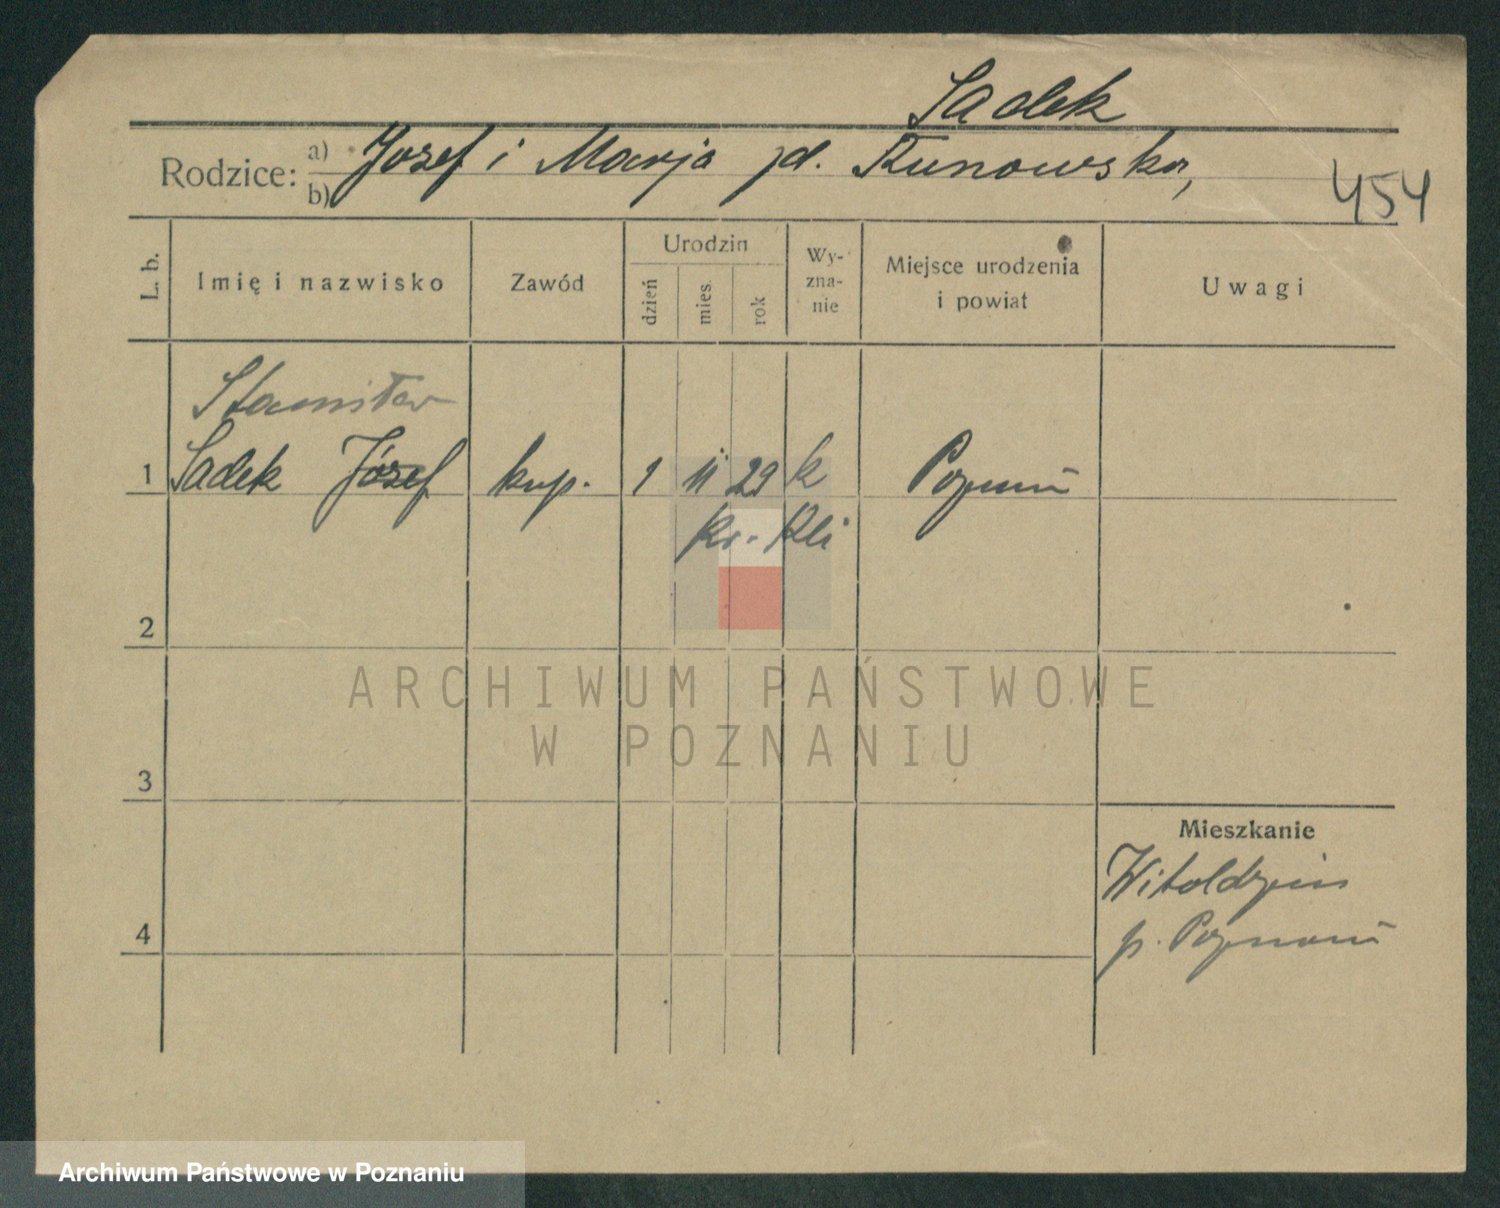 Sadek
Rodzice: a) Józef i Marja zd. Kunowska,
b)
454
L. b.
Imię i nazwisko
Zawód
Urodzin
dzień
mies.
rok
Wy-
zna-
nie
Miejsce urodzenia
i powiat
Uwagi
Stanisław
1 Sadek Józef kup. 1 11 29 k Poznań
kr.
2
3
4
Mieszkanie
p. Poznań
ARCHIWUM PAŃSTWOWE
W POZNANIU
Archiwum Państwowe w Poznaniu